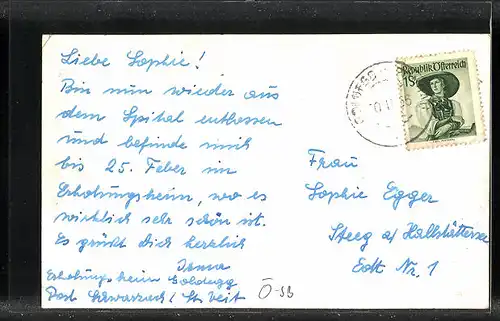 Liebe Sophie!
Bin nun wieder aus
dem Spital entlassen
und befinde mich
bis 25. Feber im
Erholungsheim, wo es
wirklich sehr schön ist.
Es grüßt Dich herzlich
Erholungsheim Goldegg
Post Schwarzach / St. Veit
Ö-SB
Republik Österreich
1S
Frau
Sophie Egger
Steeg a/ Hallstättersee
Nr. 1